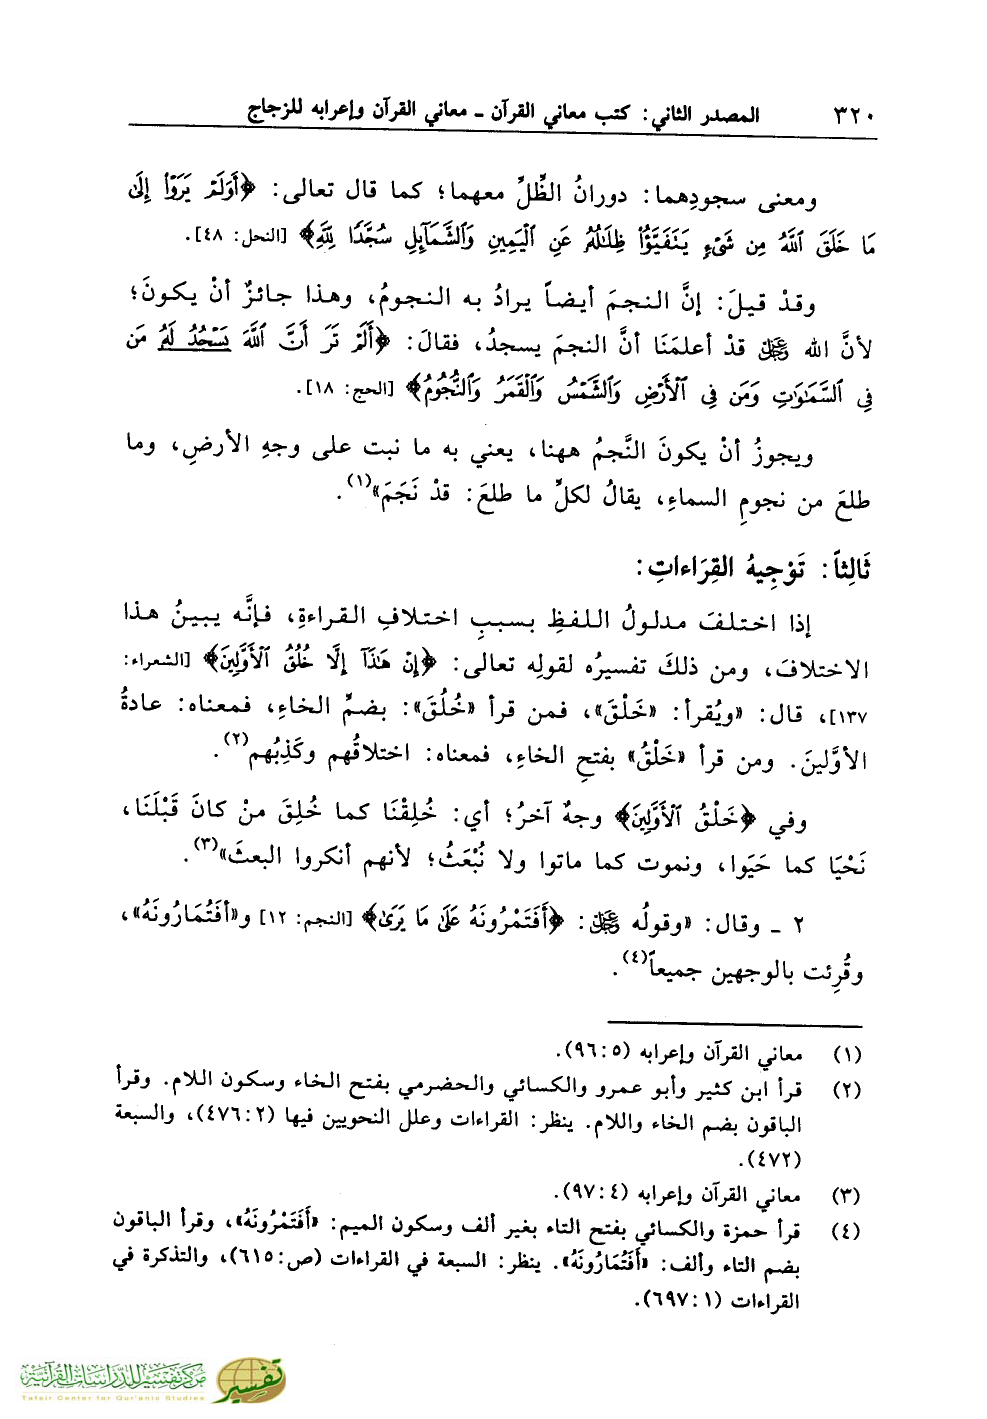 ٣٢٠ المصدر الثاني: كتب معاني القرآن ـ معاني القرآن وإعرابه للزجاج
ومعنى سجودِهما: دورانُ الظِّلِّ معهما؛ كما قال تعالى: ﴿أَوَلَمْ يَرَوْا۟ إِلَىٰ
مَا خَلَقَ ٱللَّهُ مِن شَىْءٍ يَتَفَيَّؤُا۟ ظِلَـٰلُهُۥ عَنِ ٱلْيَمِينِ وَٱلشَّمَآئِلِ سُجَّدًا لِلَّهِ﴾ [النحل: ٤٨].
وقدْ قيلَ: إنَّ النجمَ أيضاً يرادُ به النجومُ، وهذا جائزٌ أنْ يكونَ؛
لأنَّ الله ﷿ قدْ أعلمَنَا أنَّ النجمَ يسجدُ، فقالَ: ﴿أَلَمْ تَرَ أَنَّ ٱللَّهَ يَسْجُدُ لَهُۥ مَن
فِى ٱلسَّمَـٰوَٰتِ وَمَن فِى ٱلْأَرْضِ وَٱلشَّمْسُ وَٱلْقَمَرُ وَٱلنُّجُومُ﴾ [الحج: ١٨].
ويجوزُ أنْ يكونَ النَّجمُ ههنا، يعني به ما نبت على وجهِ الأرضِ، وما
طلعَ من نجومِ السماءِ، يقالُ لكلِّ ما طلعَ: قدْ نَجَمَ»(١).
ثَالِثاً: تَوْجِيهُ القِرَاءاتِ:
إذا اختلفَ مدلولُ اللفظِ بسببِ اختلافِ القراءةِ، فإنَّه يبينُ هذا
الاختلافَ، ومن ذلكَ تفسيرُه لقولِه تعالى: ﴿إِنْ هَـٰذَآ إِلَّا خُلُقُ ٱلْأَوَّلِينَ﴾ [الشعراء:
١٣٧]، قال: «ويُقرأ: «خَلْقَ»، فمن قرأ «خُلُقَ»: بضمِّ الخاءِ، فمعناه: عادةُ
الأوَّلينَ. ومن قرأ «خَلْقُ» بفتحِ الخاءِ، فمعناه: اختلاقُهم وكَذِبُهم(٢).
وفي ﴿خَلْقُ ٱلْأَوَّلِينَ﴾ وجهٌ آخرُ؛ أي: خُلِقْنَا كما خُلِقَ منْ كانَ قَبْلَنَا،
نَحْيَا كما حَيَوا، ونموت كما ماتوا ولا نُبْعَثُ؛ لأنهم أنكروا البعثَ»(٣).
٢ ـ وقال: «وقولُه ﷿: ﴿أَفَتَمْرُونَهُ عَلَىٰ مَا يَرَىٰ﴾ [النجم: ١٢] و«أفَتُمَارُونَهُ»،
وقُرِئت بالوجهين جميعاً(٤).
(١) معاني القرآن وإعرابه (٥:٩٦).
(٢) قرأ ابن كثير وأبو عمرو والكسائي والحضرمي بفتح الخاء وسكون اللام. وقرأ
الباقون بضم الخاء واللام. ينظر: القراءات وعلل النحويين فيها (٢:٤٧٦)، والسبعة
(٤٧٢).
(٣) معاني القرآن وإعرابه (٤:٩٧).
(٤) قرأ حمزة والكسائي بفتح التاء بغير ألف وسكون الميم: «أَفَتَمْرُونَهُ»، وقرأ الباقون
بضم التاء وألف: «أَفَتُمَارُونَهُ». ينظر: السبعة في القراءات (ص:٦١٥)، والتذكرة في
القراءات (١:٦٩٧).
مركز تفسير للدراسات القرآنية تفسير
Tafsir Center for Qur'anic Studies